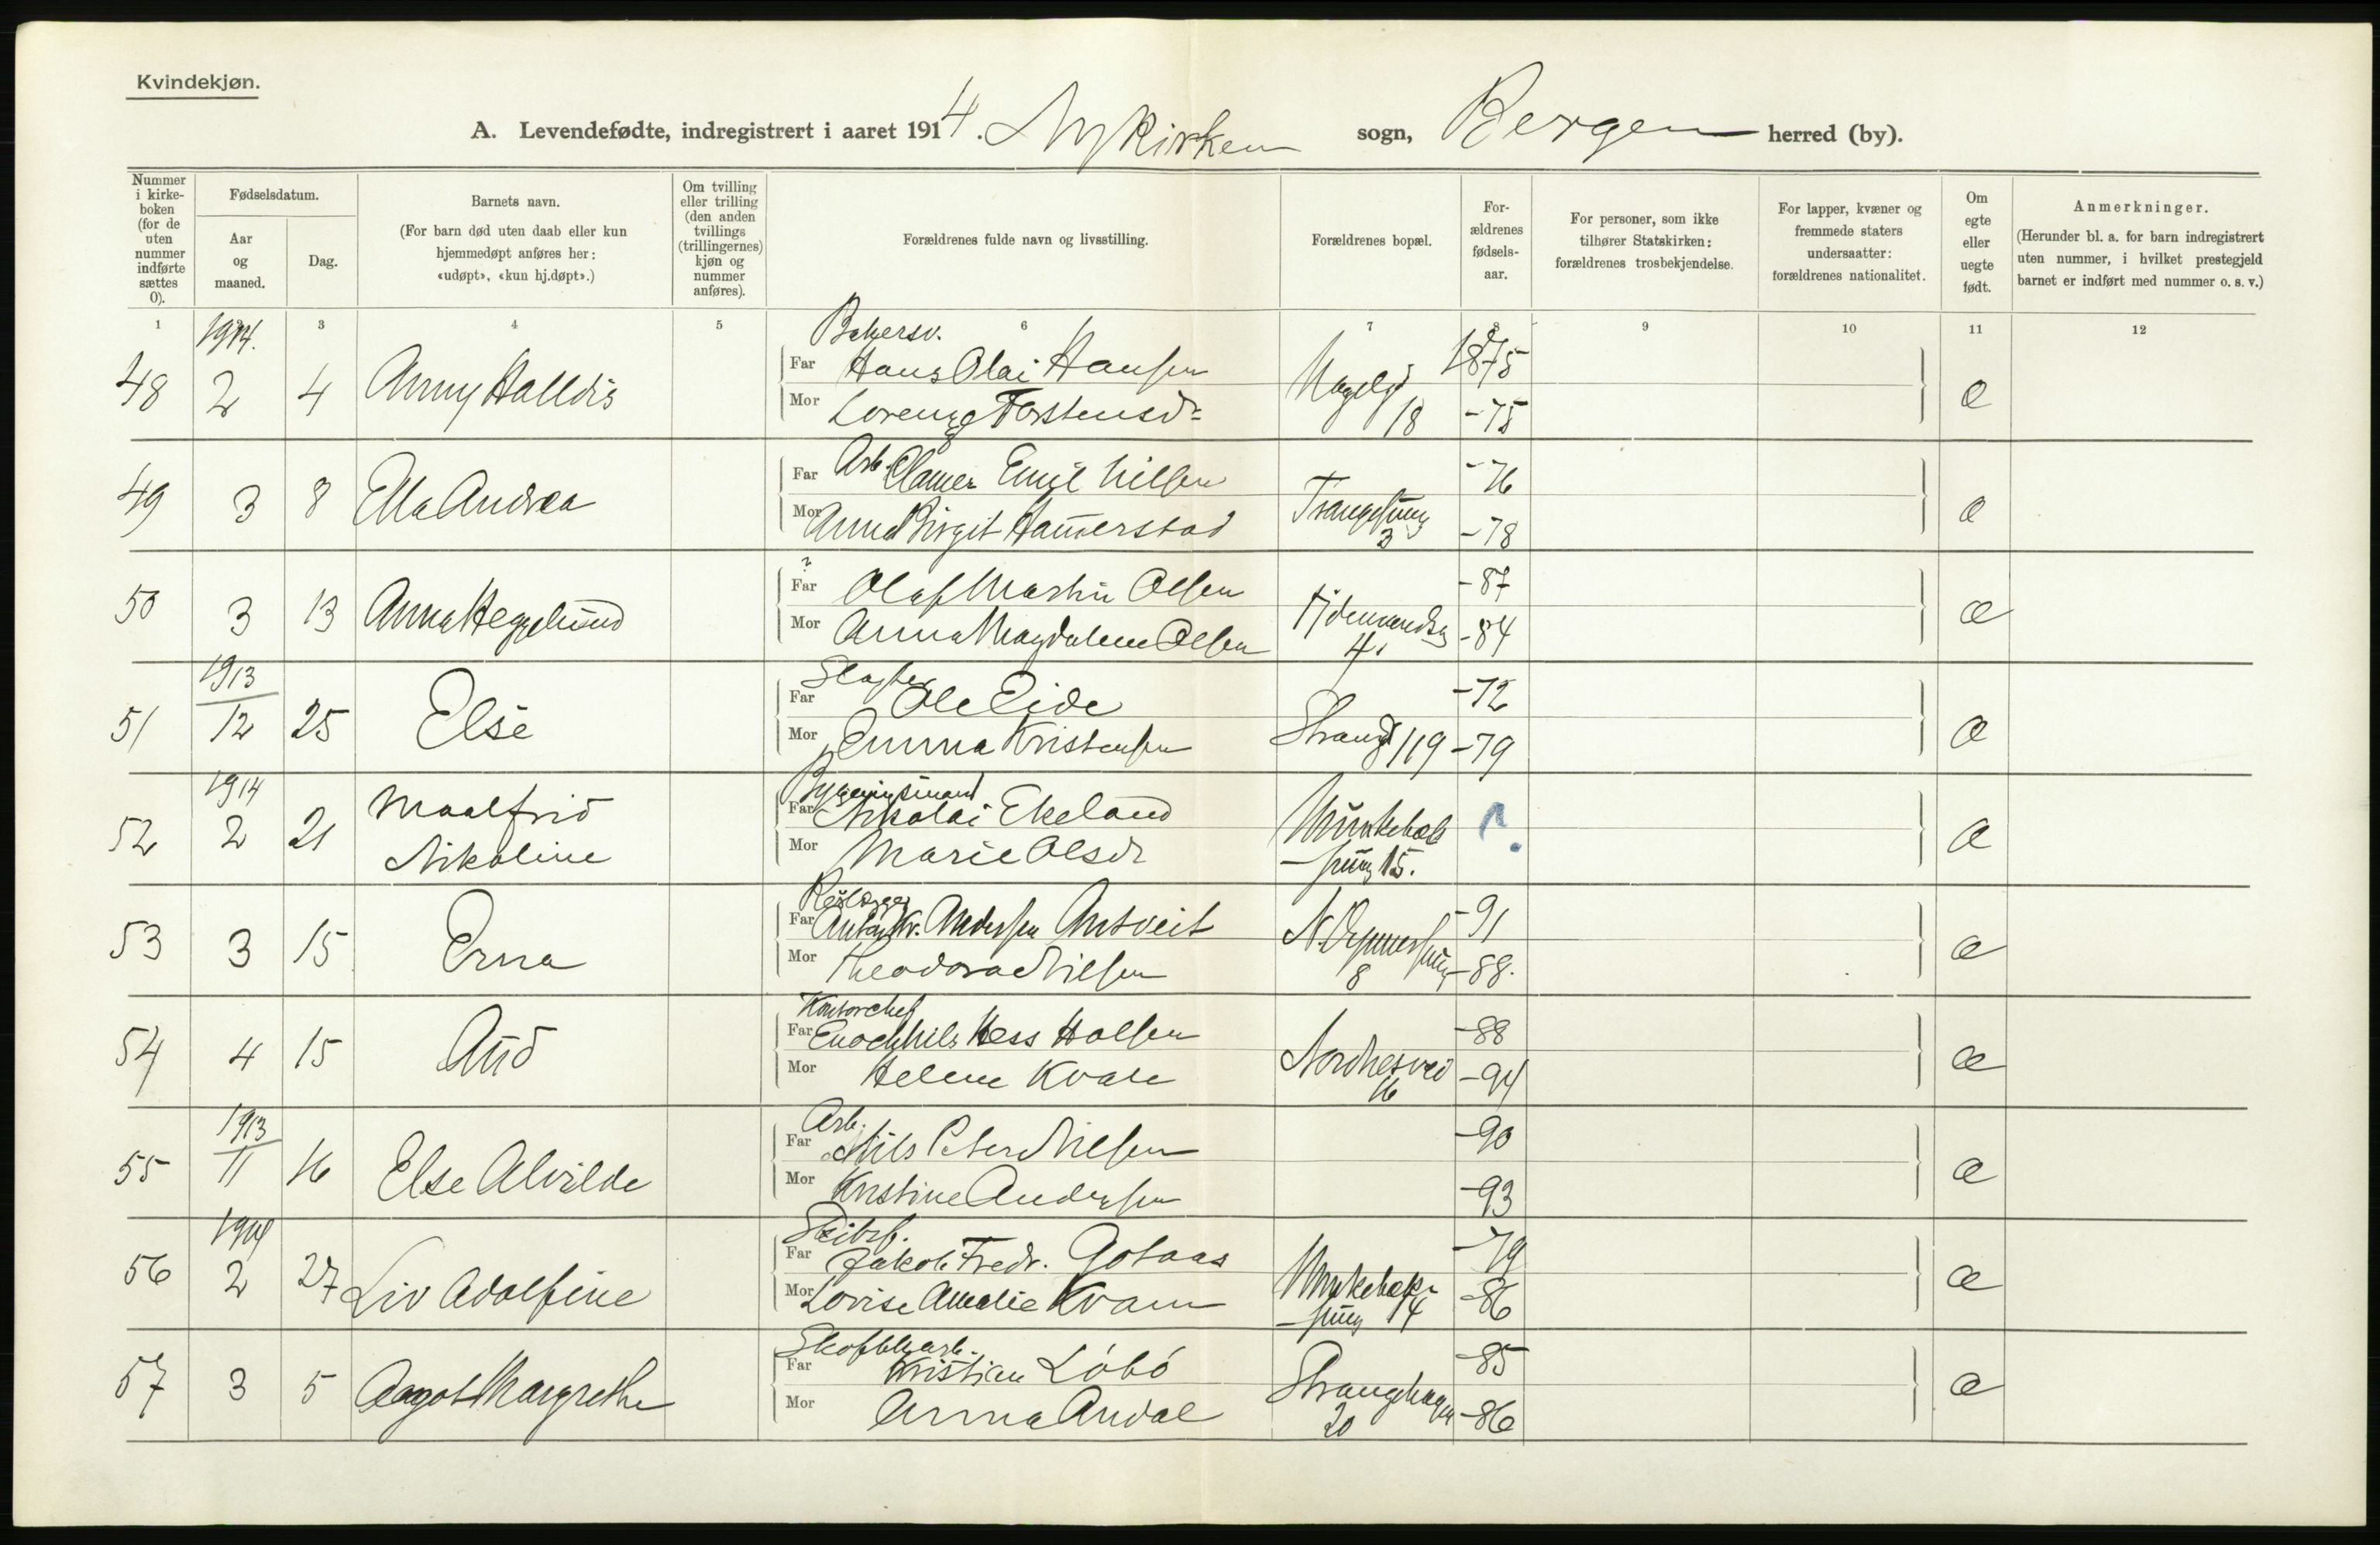 Kvindekjøn.
A. Levendefødte, indregistrert i aaret 1914. Nykirken sogn, Bergen herred (by).
Nummer i kirke-boken (for de uten nummer indførte sættes 0).
Fødselsdatum.
Aar og maaned.
Dag.
Barnets navn.
(For barn død uten daab eller kun hjemmedøpt anføres her: «udøpt», «kun hj.døpt».)
Om tvilling eller trilling (den anden tvillings (trillingernes) kjøn og nummer anføres).
Forældrenes fulde navn og livsstilling.
Forældrenes bopæl.
For-ældrenes fødsels-aar.
For personer, som ikke tilhører Statskirken: forældrenes trosbekjendelse.
For lapper, kvæner og fremmede staters undersaatter: forældrenes nationalitet.
Om egte eller uegte født.
Anmerkninger.
(Herunder bl. a. for barn indregistrert uten nummer, i hvilket prestegjeld barnet er indført med nummer o. s. v.)
1 2 3 4 5 6 7 8 9 10 11 12
1914. Bakersv.
48 2 4 Anny Halldis Far Hans Olai Hansen 1875
Mor Torstensdr 18 -75 æ
49 3 8 Ella Andrea Far Arb. Emil Nilsen -76
Mor Anna Birgit Hamerstad 3 -78 æ
?
50 3 13 Anna Hegglund Far Olaf Martin Olsen -87
Mor Anna Magdalene Olsen Tidemandsg 4. -84 æ
1913 Slagter
51 12 25 Else Far Ole Eide -72
Mor Emma Kristensen Strandg 119 -79 æ
1914 Bygningsmand
52 2 21 Maalfrid Nikoline Far Nikolai Ekeland ?
Mor Marie Olsdr 15. æ
53 3 15 Erna Far Anton Kr. Andersen -91
Mor Theodora Nilsen 8 -88. æ
Kontorchef
54 4 15 Aud Far Enoch Nils Hess Halsen -88
Mor Helene Kvale Nordnesvei 16 -94 æ
1913 Arb.
55 11 16 Else Alvilde Far Nils Peter Nilsen -90
Mor Kristine Andersen -93 æ
1914 Skibsf.
56 2 27 Liv Adolfine Far Jakob Fredr. Gotaas -79
Mor Lovise Amalie Kvam 14 -86 æ
Skofbkarb.
57 3 5 Aagot Margrethe Far Kristian Löbö -85
Mor Anna Andal Strangehagen 20 -86 æ